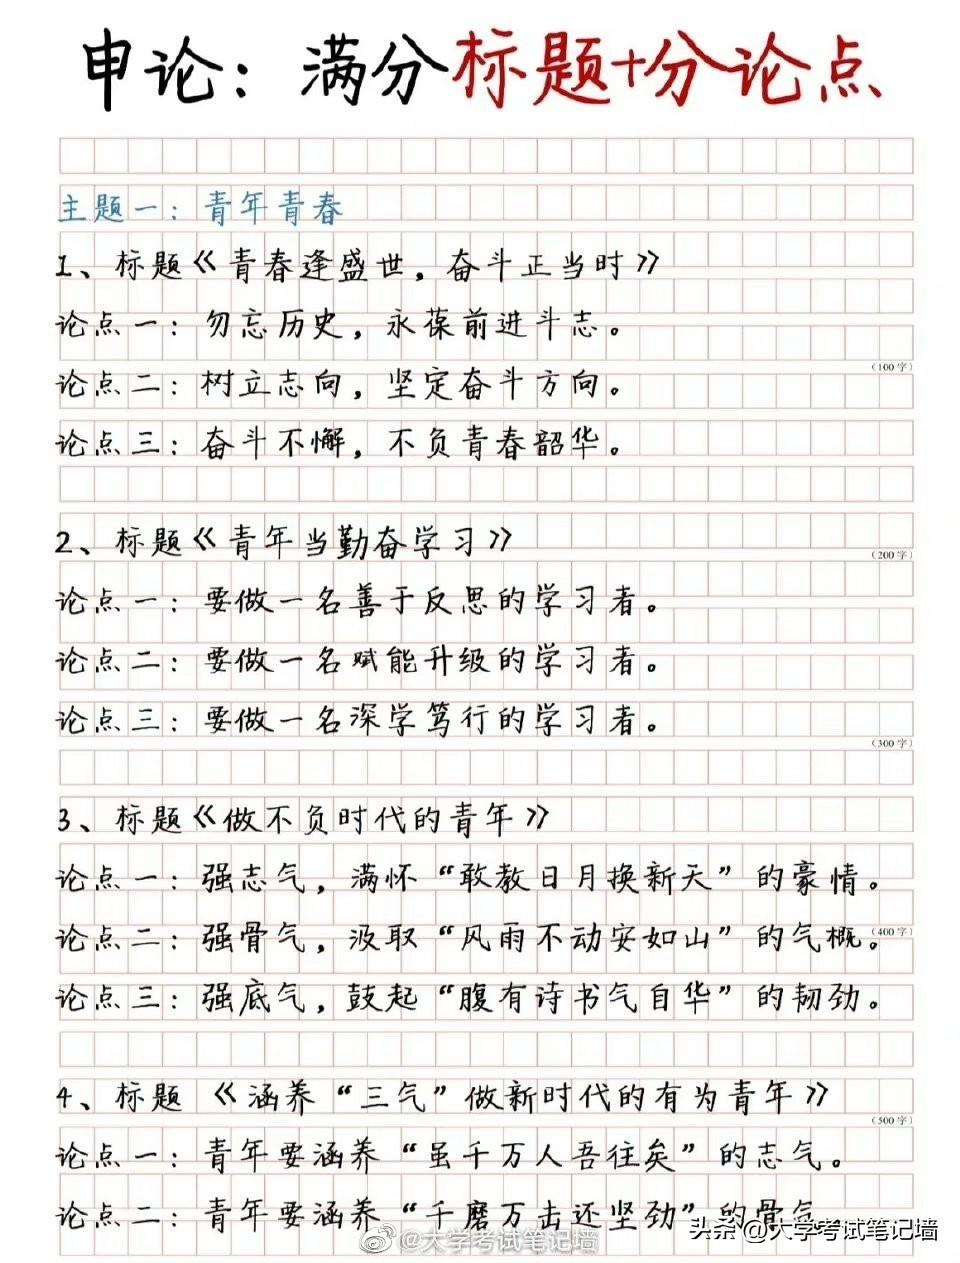 申论：满分标题+分论点
主题一：青年青春
1、标题《青春逢盛世，奋斗正当时》
论点一：勿忘历史，永葆前进斗志。
（100字）
论点二：树立志向，坚定奋斗方向。
论点三：奋斗不懈，不负青春韶华。
2、标题《青年当勤奋学习》
（200字）
论点一：要做一名善于反思的学习者。
论点二：要做一名赋能升级的学习者。
论点三：要做一名深学笃行的学习者。
（300字）
3、标题《做不负时代的青年》
论点一：强志气，满怀“敢教日月换新天”的豪情。
论点二：强骨气，汲取“风雨不动安如山”的气概。
（400字）
论点三：强底气，鼓起“腹有诗书气自华”的韧劲。
4、标题《涵养“三气”做新时代的有为青年》
（500字）
论点一：青年要涵养“虽千万人吾往矣”的志气。
论点二：青年要涵养“千磨万击还坚劲”的骨气
@大学考试笔记墙
头条 @大学考试笔记墙